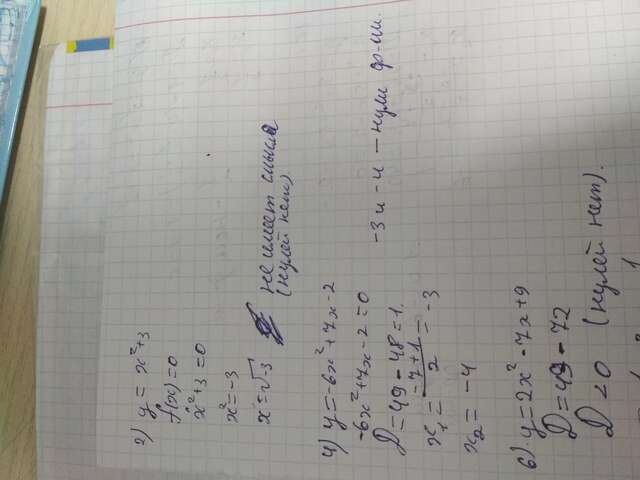 2) y = x²+3
f(x)=0
x²+3=0
x²=-3
x=√-3 не имеет смысла
(нулей нет)
4) y=-6x²+7x-2
-6x²+7x-2=0
D=49-48=1.
x₁= -7+1/2 = -3
x₂= -4
-3 и -4 — нули ф-ии.
6) y=2x²-7x+9
D=49-72
D<0 (нулей нет).